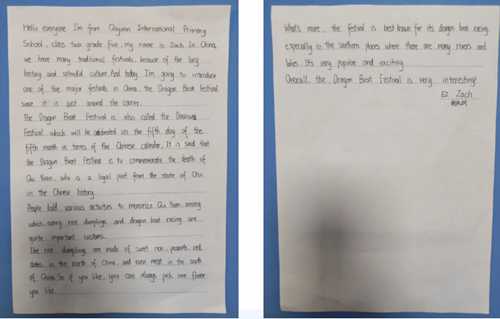 Hello everyone I'm from Qiyuan International Primary
School, class two grade five, my name is Zach. In China,
we have many traditional festivals, because of the long
history and splendid culture. And today I'm going to introduce
one of the major festivals in China, the Dragon Boat Festival
since it is just around the corner.
The Dragon Boat Festival is also called the Duanwu
Festival, which will be celebrated on the fifth day of the
fifth month in terms of the Chinese calendar. It is said that
the Dragon Boat Festival is to commemorate the death of
Qu Yuan, who is a loyal poet from the state of Chu
in the Chinese history.
People hold various activities to memorize Qu Yuan, among
which eating rice dumplings and dragon boat racing are
quite important customs.
The rice dumpling are made of sweet rice, peanuts, red
dates in the north of China, and even meat in the south
of China. So if you like, you can always pick one flavor
you like.
What's more, the festival is best known for its dragon boat racing,
especially in the southern places where there are many rivers and
lakes. It's very popular and exciting.
Overall, the Dragon Boat Festival is very interesting!
Zach